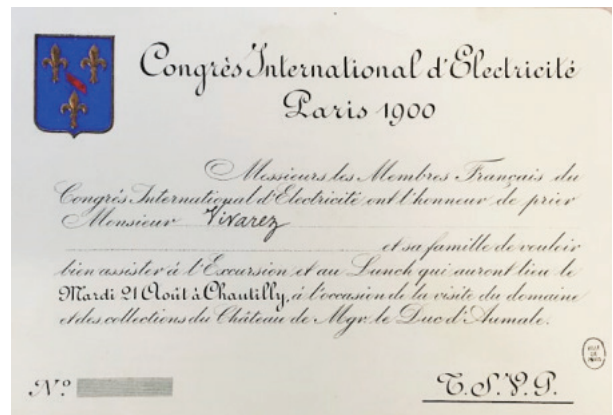 Congrès International d'Electricité
Paris 1900
Messieurs les Membres Français du
Congrès International d'Electricité ont l'honneur de prier
Monsieur Vivarez
et sa famille de vouloir
bien assister à l'Excursion et au Lunch qui auront lieu le
Mardi 21 Août à Chantilly, à l'occasion de la visite du domaine
et des collections du Château de Mgr. le Duc d'Aumale.
VILLE
DE
PARIS
Nº
T.S.V.P.